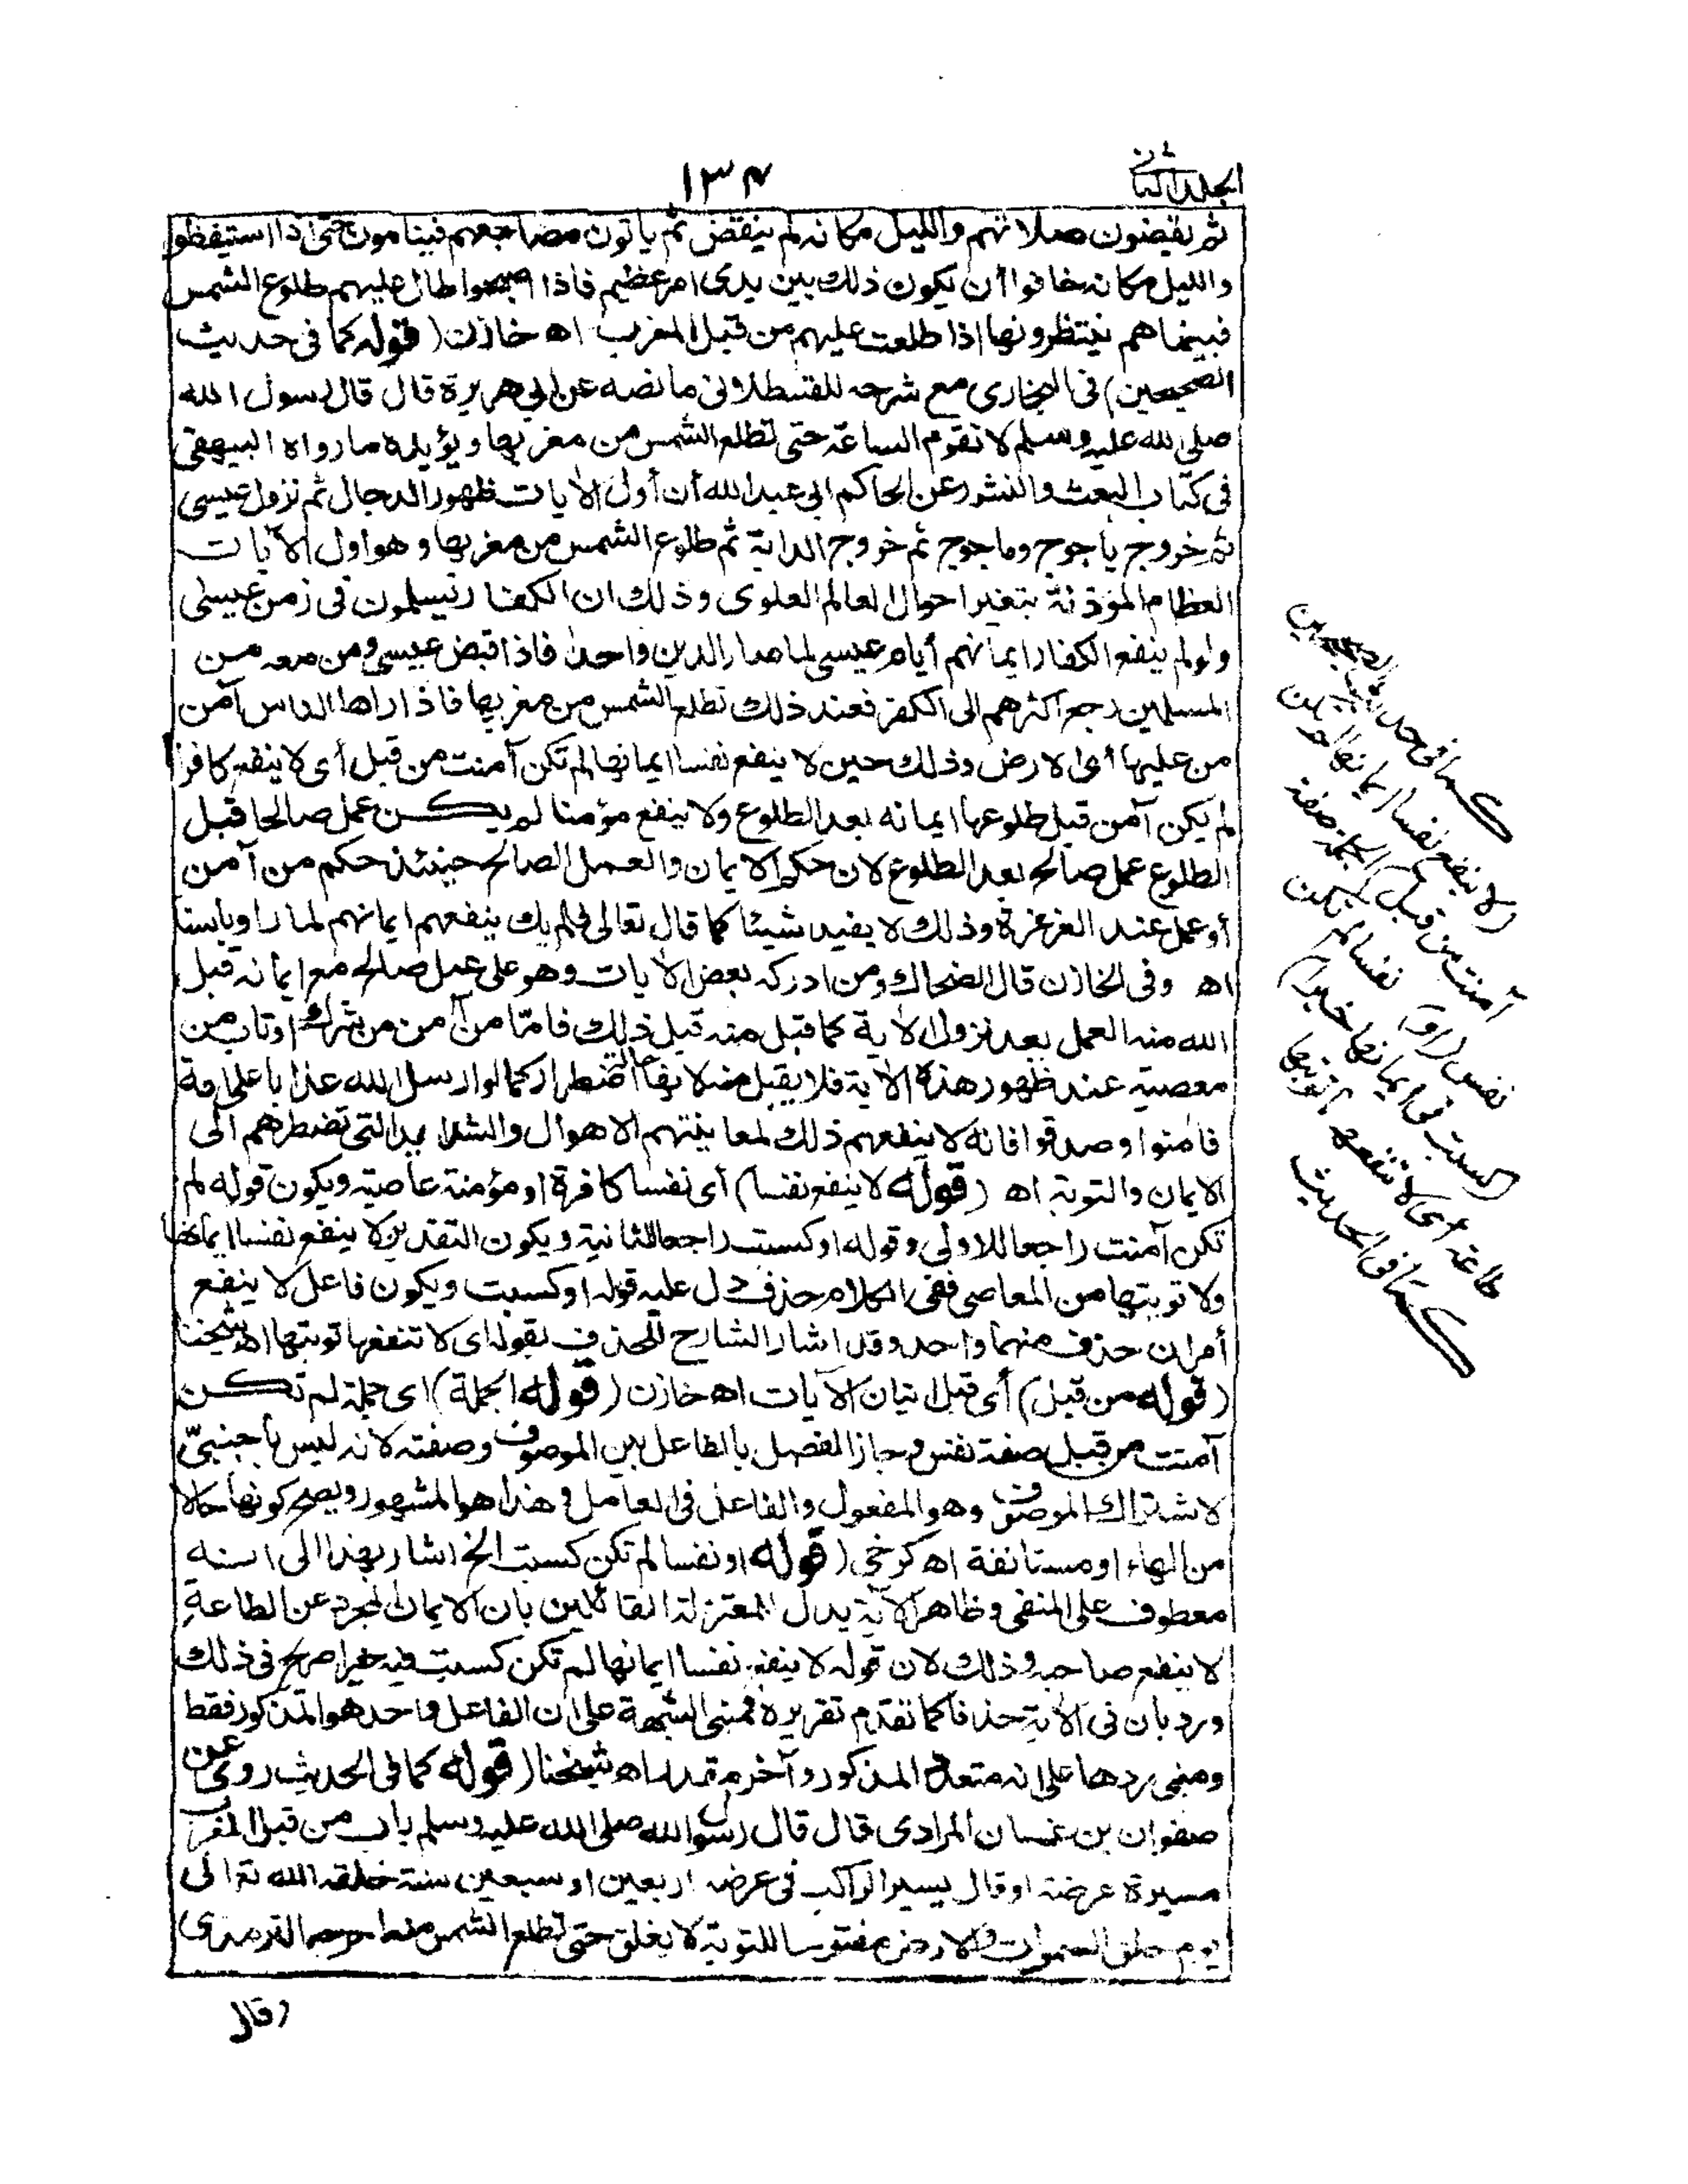 الجلد الثاني
١٣٤
ثم يقضون صلاتهم والليل مكانه لم ينقض ثم ياتون مضاجعهم فينامون حتى اذا استيقظوا
والليل مكانه خافوا أن يكون ذلك بين يدى امر عظيم فاذا اصبحوا طال عليهم طلوع الشمس
فبينما هم ينتظرونها اذا طلعت عليهم من قبل المغرب اه خازن (قوله كما فى حديث
الصحيحين) فى البخارى مع شرحه للقسطلانى ما نصه عن ابى هريرة قال قال رسول الله
صلى الله عليه وسلم لا تقوم الساعة حتى تطلع الشمس من مغربها ويؤيده ما رواه البيهقى
فى كتاب البعث والنشور عن الحاكم ابى عبد الله أن أول الأيات ظهور الدجال ثم نزول عيسى
ثم خروج ياجوج وماجوج ثم خروج الدابة ثم طلوع الشمس من مغربها وهو اول الآيات
العظام المؤذنة بتغير احوال العالم العلوى وذلك ان الكفار يسلمون فى زمن عيسى
ولو لم ينفع الكفار ايمانهم أيام عيسى لما صار الدين واحدا فاذا قبض عيسى ومن معه من
المسلمين رجع أكثرهم الى الكفر فعند ذلك تطلع الشمس من مغربها فاذا راها الناس آمن
من عليها أى الارض وذلك حين لا ينفع نفسا ايمانها لم تكن آمنت من قبل أى لا ينفع كافرا
لم يكن آمن قبل طلوعها ايمانه بعد الطلوع ولا ينفع مؤمنا لم يكن عمل صالحا قبل
الطلوع عمل صالح بعد الطلوع لان حكم الايمان والعمل الصالح حينئذ حكم من آمن
أو عمل عند الغرغرة وذلك لا يفيد شيئا كما قال تعالى فلم يك ينفعهم ايمانهم لما راوا باسنا
اه وفى الخازن قال الضحاك ومن ادركه بعض الأيات وهو على عمل صالح مع ايمانه قبل
الله منه العمل بعد نزول الأية كما قبل منه قبل ذلك فامّا من آمن من شرك او تاب من
معصية عند ظهور هذه الأية فلا يقبل منه لانها حالة اضطرار كما لو ارسل الله عذابا على امة
فامنوا وصدقوا فانه لا ينفعهم ذلك لمعاينتهم الاهوال والشدايد التى تضطرهم الى
الايمان والتوبة اه (قوله لا ينفع نفسا) أى نفسا كافرة او مؤمنة عاصية ويكون قوله لم
تكن آمنت راجعا للاولى وقوله او كسبت راجعا للثانية ويكون التقدير لا ينفع نفسا ايمانها
ولا توبتها من المعاصى ففى الكلام حذف دل عليه قوله او كسبت ويكون فاعل لا ينفع
أمران حذف منهما واحد وقد اشار الشارح للحذف بقوله اى لا تنفعها توبتها اه شيخنا
(قوله من قبل) أى قبل اتيان الآيات اه خازن (قوله الجملة) اى جملة لم تكن
آمنت من قبل صفة نفس وجاز الفصل بالفاعل بين الموصوف وصفته لانه ليس باجنبىّ
لاشتراك الموصوف وهو المفعول والفاعل فى العامل و هذا هو المشهور ويصح كونها حالا
من الهاء او مستانفة اه كرخى (قوله او نفسا لم تكن كسبت الخ اشار بهذا الى انه
معطوف على المنفى وظاهر الآية يدل للمعتزلة القائلين بان الايمان المجرد عن الطاعة
لا ينفع صاحبه وذلك لان قوله لا ينفع نفسا ايمانها لم تكن كسبت فيه خيرا صريح فى ذلك
ورد بان فى الأية حذفا كما تقدم تقريره فمبنى الشبهة على ان الفاعل واحد هو المذكور فقط
ومبنى ردها على انه متعدد المذكور وآخر مقدر اه شيخنا (قوله كما فى الحديث روى عن
صفوان بن غسان المرادى قال قال رسول الله صلى الله عليه وسلم باب من قبل المغرب
مسيرة عرضه او قال يسير الراكب فى عرضه اربعين او سبعين سنة خلقه الله تعالى
يوم خلق السموات والارض مفتوحا للتوبة لا يغلق حتى تطلع الشمس منه اخرجه الترمذى
وقال
كما فى حديث الصحيحين
(لا ينفع نفسا ايمانها لم تكن
آمنت من قبل) الجملة صفة
نفس (او) نفسا لم تكن
(كسبت فى ايمانها خيرا)
طاعة أى لا تنفعها توبتها
كما فى الحديث